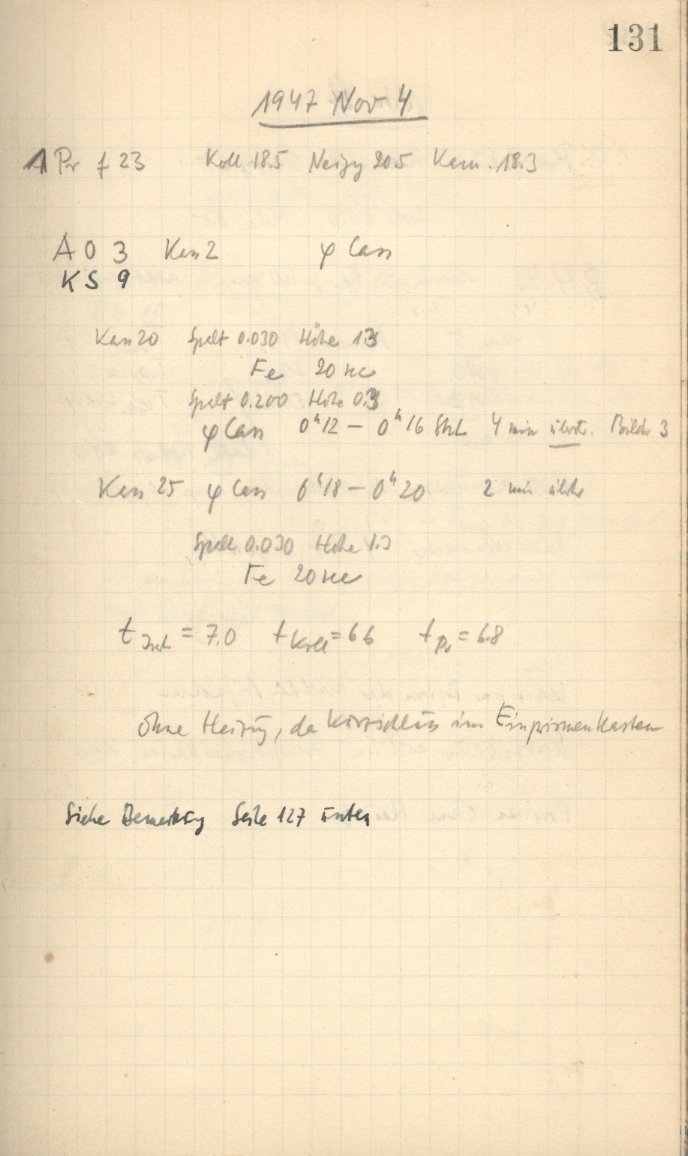 131
1947 Nov 4
1 Pr f 23 Koll 18.5 Neigg 20.5 Kam. 18.3
A 0 3 Kas 2 φ Cass
KS 9
Kas 20 Spalt 0.030 Höhe 1.3
Fe 20 sec
Spalt 0.200 Höhe 0.3
φ Cass 0ʰ12 – 0ʰ16 4 min Bilder 3
Kass 25 φ Cass 0ʰ18 – 0ʰ20 2 min
Spalt 0.030 Höhe 1.3
Fe 20 sec
t = 7.0 t Koll = 6.6 t Pr = 6.8
Ohne Heizung, da Kurzschluss im Einprismenkasten
Siehe Bemerkung Seite 127 unten